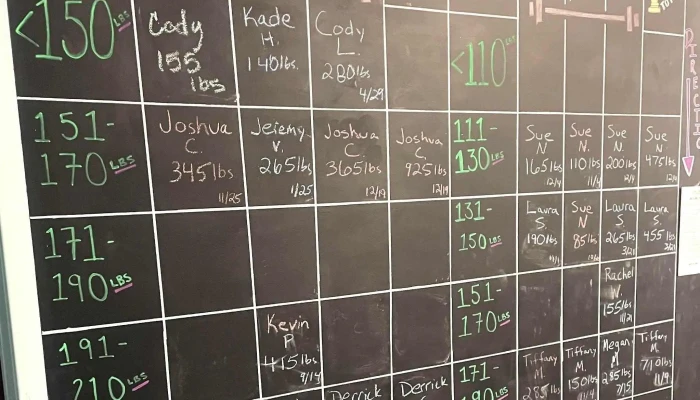 <150 LBS
Cody
155
lbs
Kade
H.
140lbs.
Cody
L.
280lbs
4/29
<110
151-
170 LBS
Joshua
C.
345lbs
11/25
Jeremy
V.
265lbs
1/25
Joshua
C.
365lbs
12/19
Joshua
C.
925lbs
12/19
111-
130 LBS
Sue
N.
165lbs
12/9
Sue
N.
110lbs
11/4
Sue
N.
200lbs
Sue
N.
475lbs
171-
190 LBS
131-
150 LBS
Laura
S.
190lbs
Sue
N
85lbs
Laura
S.
265lbs
Laura
S.
455 lbs
151-
170 LBS
Rachel
155lbs
11/21
191-
210 LBS
Kevin
P
415lbs
3/14
Derrick
Derrick
171-
Tiffany
M.
285lbs
Tiffany
M.
150lbs
Megan
M
285lbs
7/15
Tiffany
M.
710lbs
11/9